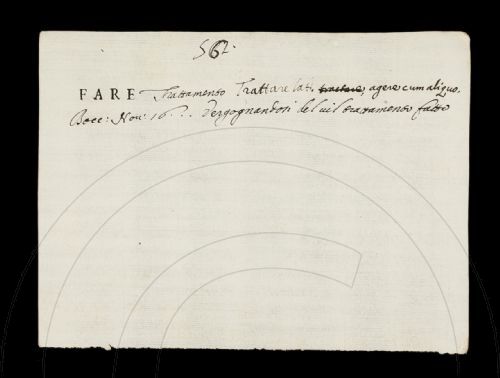 562.
FARE Trattamento Trattare lat. tractare, agere cum aliquo.
Bocc: Nov: 16 . . . Vergognandosi del vil trattamento fatto